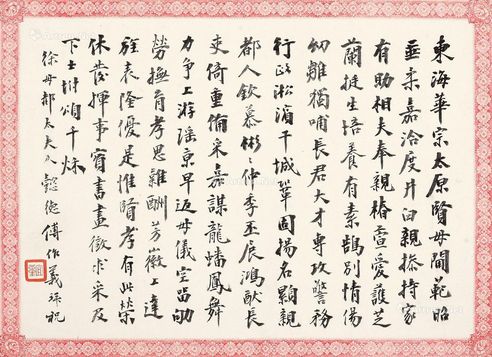 東海華宗太原賢母閫範昭
垂柔嘉洽度井臼親操持家
有助相夫奉親椿萱愛護芝
蘭挺生培養有素鵠別情傷
幼雛獨哺長君大才專攻警務
行政淞濱干城鞏固揚名顯親
都人欽慕彬彬仲季丕展鴻猷長
史倚重備采嘉謀龍蟠鳳舞
力爭上游瑤京早返母儀空留劬
勞撫育孝思難酬芳徽上達
旌表隆優是惟賢孝有此榮
休發揮事實書畫徵求采及
下士坿頌千秋
徐母郝太夫人懿德 傅作義拜祝